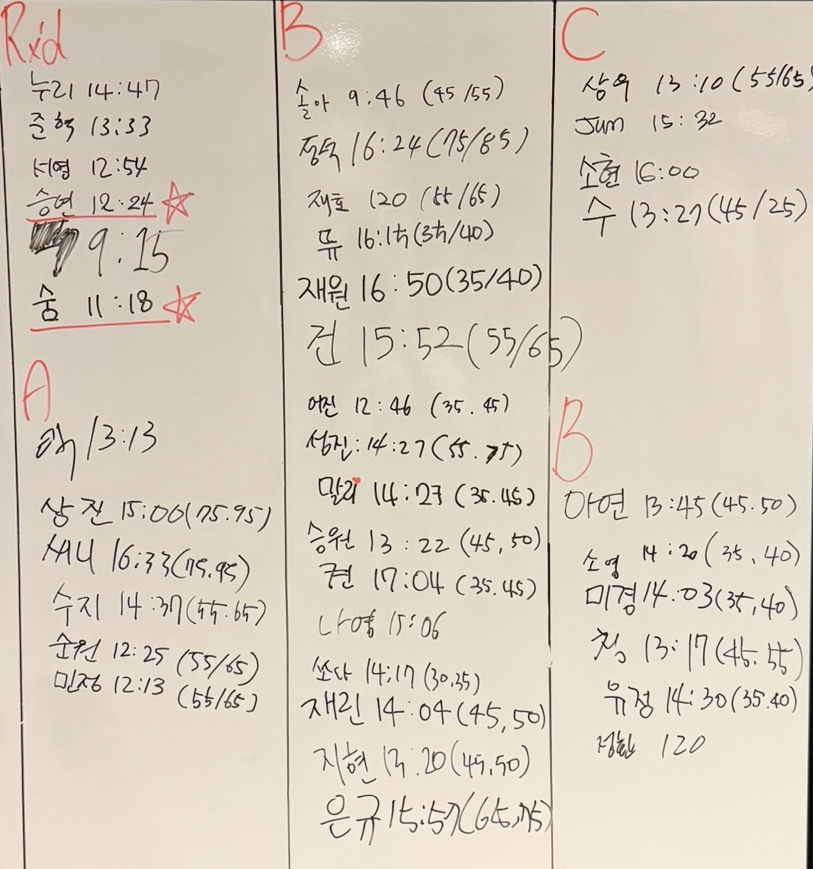 Rx'd
누리 14:47
준혁 13:33
서영 12:54
승연 12:24
9:15
숨 11:18
A
13:13
상진 15:00(75.95)
써니 16:33(75.95)
수지 14:37(55.65)
순원 12:25 (55/65)
민정 12:13 (55/65)
B
솔아 9:46 (45/55)
정석 16:24(75/85)
재호 120 (55/65)
뮤 16:15(35/40)
재원 16:50(35/40)
건 15:52(55/65)
어진 12:46 (35.45)
성진:14:27(55.75)
말리 14:27(35.45)
승원 13:22 (45,50)
퀸 17:04 (35.45)
나영 15:06
쏘다 14:17 (30.35)
재린 14:04(45,50)
지현 13:20(45,50)
은규 15:57(65,75)
C
상우 13:10(55/65)
Jun 15:32
소현 16:00
수 13:27(45/25)
B
아연 13:45(45.50)
소영 14:20(35,40)
미경 14:03(35,40)
청 13:17(45.55)
유정 14:30(35.40)
정환 120